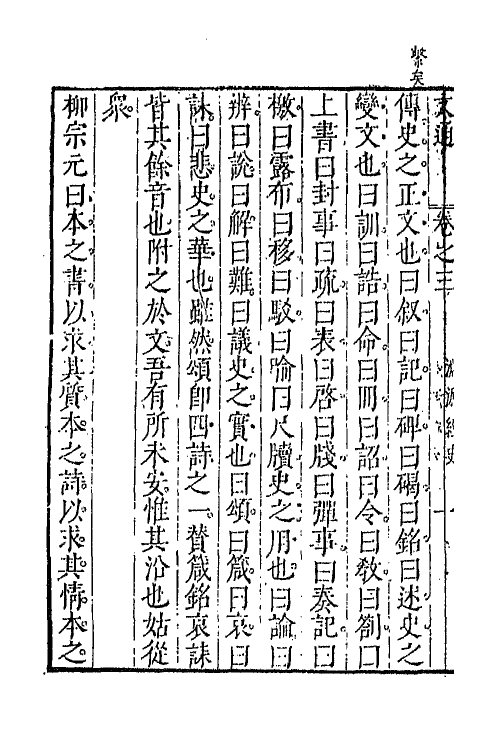 繫矣
文通 卷之三
傳史之正文也曰叙曰記曰碑曰碣曰銘曰述史之
變文也曰訓曰誥曰命曰冊曰詔曰令曰教曰劄曰
上書曰封事曰疏曰表曰啓曰牋曰彈事曰奏記曰
檄曰露布曰移曰駁曰喻曰尺牘史之用也曰論曰
辨曰說曰解曰難曰議史之實也曰頌曰箴曰哀曰
誄曰悲史之華也雖然頌卽四詩之一贊箴銘哀誄
皆其餘音也附之於文吾有所未安惟其沿也姑從
衆
柳宗元曰本之書以求其質本之詩以求其情本之